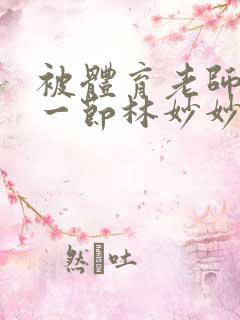 被體育老師
一節林妙妙
然�吐